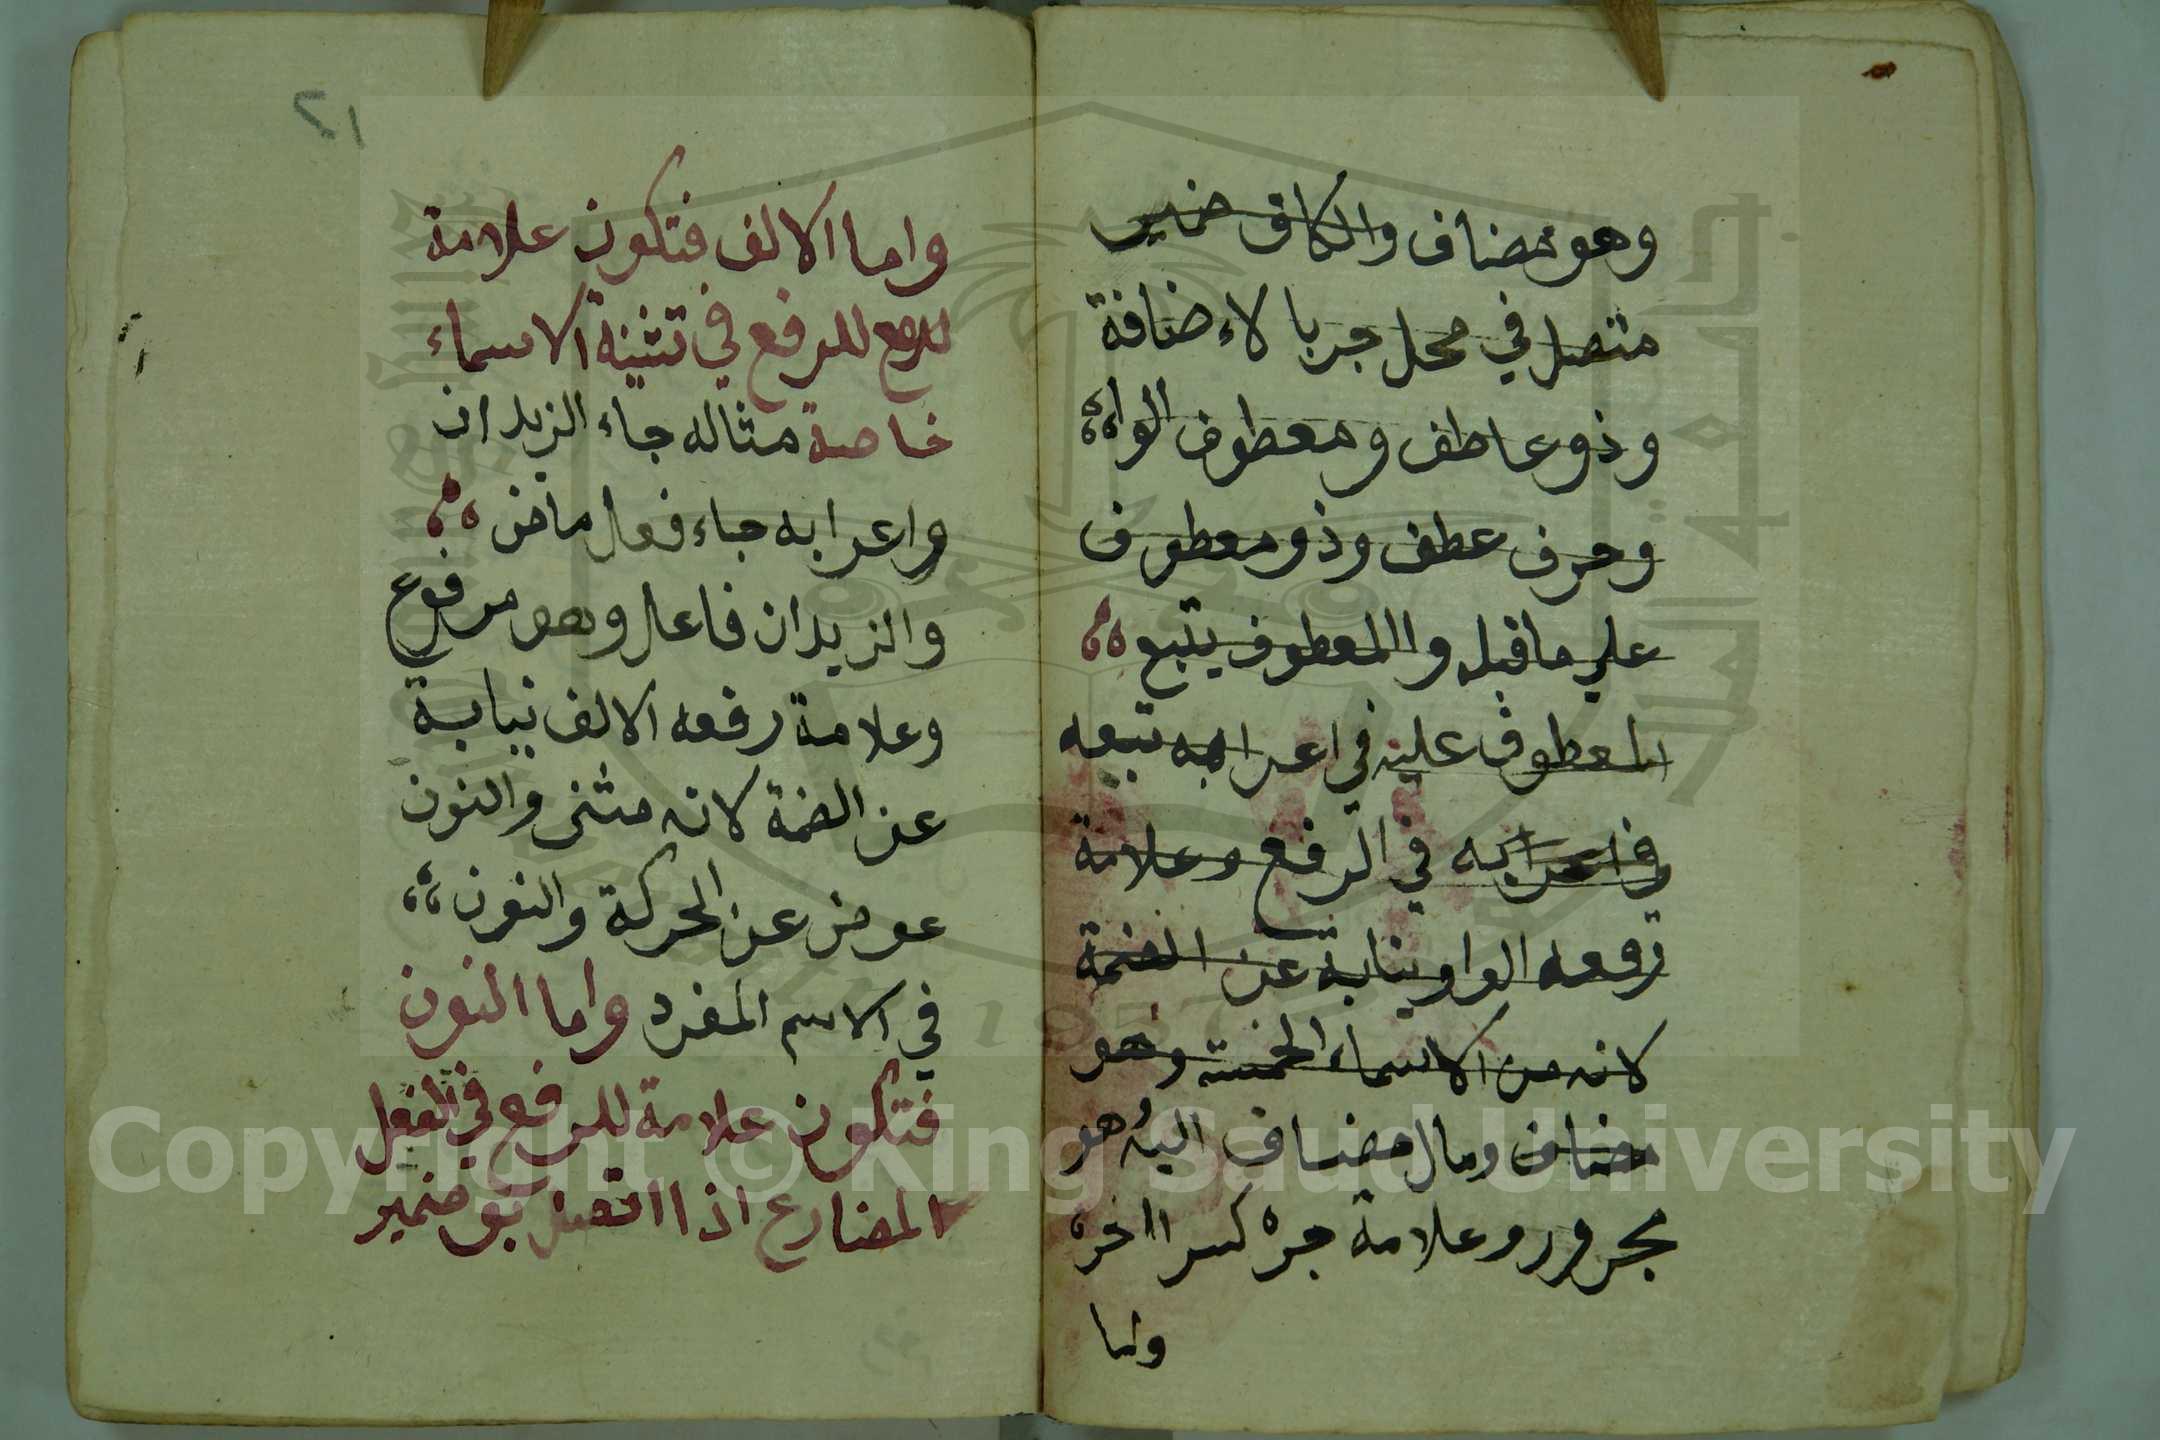 وهو مضاف والكاف ضمير
متصل في محل جر بالاءضافة
وذو عاطف ومعطوف الواو
وحرف عطف وذو معطوف
علي ما قبله واالمعطوف يتبع
المعطوف عليه في اعرابه تبعه
في اعرابه في الرفع وعلامة
رفعه الواو نيابة عن الضمة
لانه من الاسماء الخمسة وهو
مضاف ومال مضاف اليه هو
مجرور وعلامة جره كسر ااخره
واما
٢١
واما الالف فتكون علامة
للرفع للرفع في تثنية الاسماء
خاصة مثاله جاء الزيدان
واعرابه جاء فعل ماض
والزيدان فاعل وهو مرفوع
وعلامة رفعه الالف نيابة
عن الضمة لانه مثنى والنون
عوض عن الحركة والنون
في الاسم المفرد واما النون
فتكون علامة للرفع في الفعل
المضارع اذا اتصل به ضمير
Copyright © King Saud University
1957